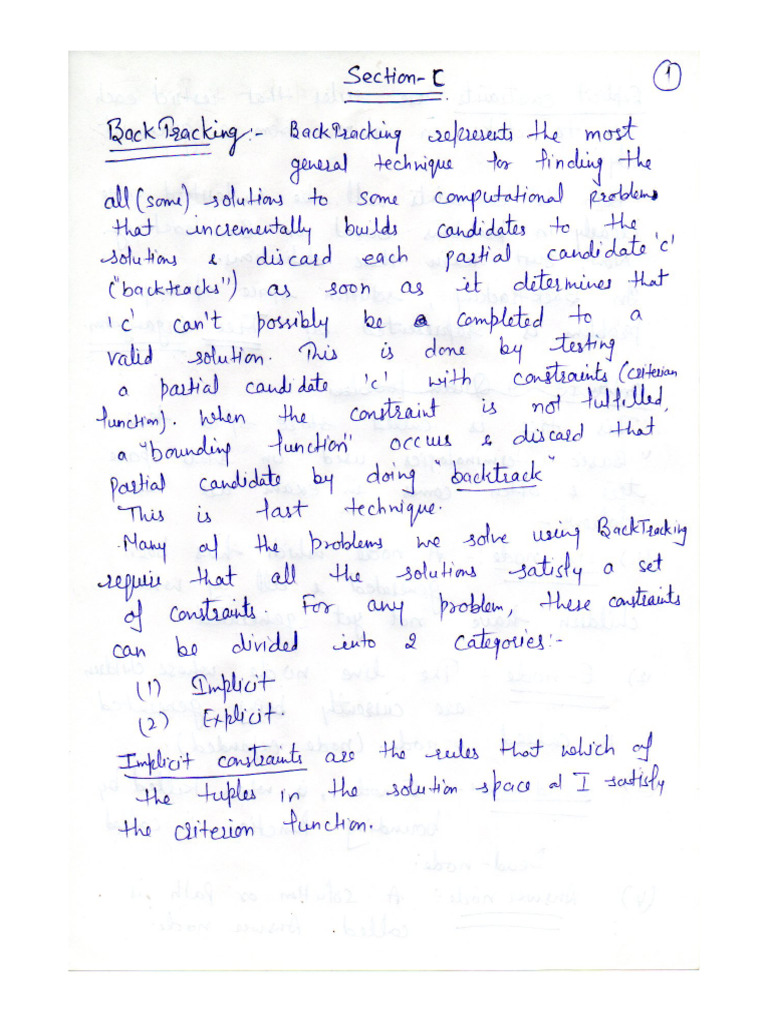 Section-C
1
BackTracking:- BackTracking represents the most
general technique for finding the
all (some) solutions to some computational problems
that incrementally builds candidates to the
solutions & discard each partial candidate 'c'
("backtracks") as soon as it determines that
'c' can't possibly be completed to a
valid solution. This is done by testing
a partial candidate 'c' with constraints (criterian
function). When the constraint is not fulfilled,
a "bounding function" occurs & discard that
partial candidate by doing backtrack"
This is fast technique.
Many of the problems we solve using BackTracking
require that all the solutions satisfy a set
of constraints. For any problem, these constraints
can be divided into 2 categories:-
(1) Implicit
(2) Explicit.
Implicit constraints are the rules that which of
the tuples in the solution space of I satisfy
the criterion function.